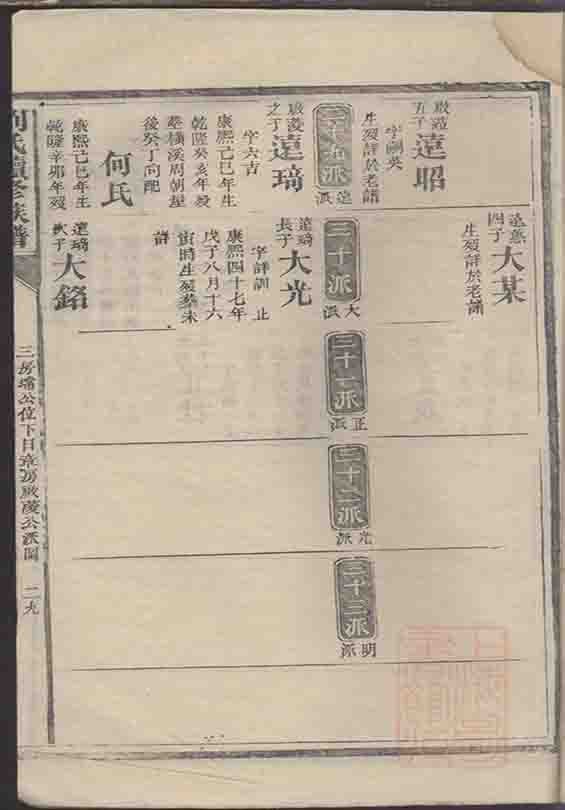 啟證
五子
遠昭
字嗣英
生殁詳於老譜
二十九派
遠派
啟薐
之子
遠琦
字六吉
康熙己巳年生
乾隆癸亥年殁
塟橫溪周朝屋
後癸丁向配
何氏
康熙己巳年生
乾隆辛卯年殁
四子
大某
生殁詳於老譜
三十派
大派
遠琦
長子
大光
字詳訓 止
康熙四十七年
戊子八月十六
寅時生殁塟未
譜
遠琦
次子
大銘
三十一派
正派
三十二派
光派
三十三派
明派
劉氏續修族譜
三房 公位下日章房啟薐公派圖 二九